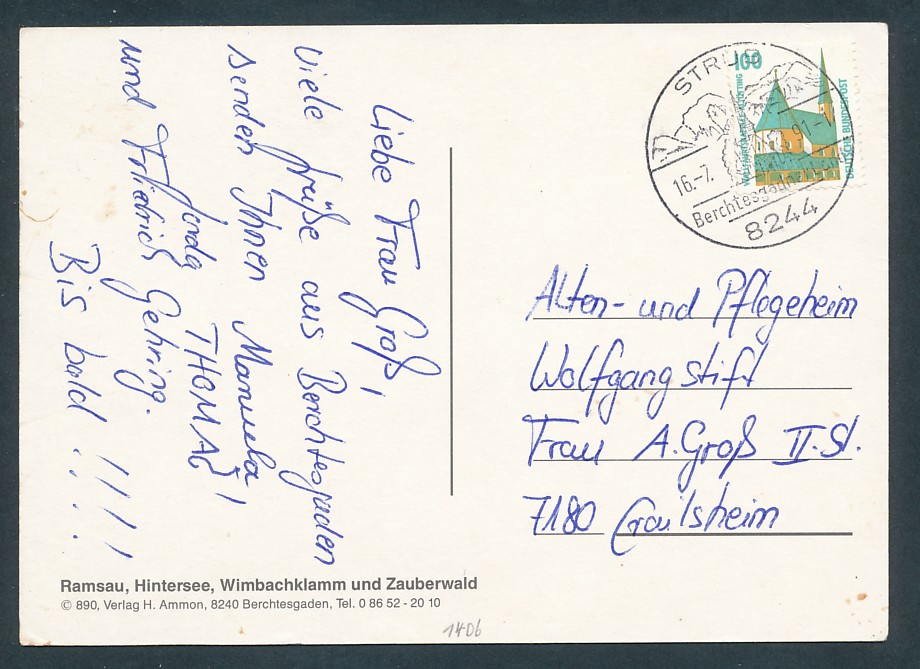 Liebe Frau Groß,
Viele Grüße aus Berchtesgaden
senden Ihnen Manuela,
Jorda THOMAČ
und Friedrich Gehring.
Bis bald !!!!
STRUB
16.-7. 91-
Berchtesgadner
8244
100
WALLFAHRTSKAPELLE ALTÖTTING
DEUTSCHE BUNDESPOST
Alten- und Pflegeheim
Wolfgangstift
Frau A. Groß II. St.
7180 Crailsheim
Ramsau, Hintersee, Wimbachklamm und Zauberwald
© 890, Verlag H. Ammon, 8240 Berchtesgaden, Tel. 0 86 52 - 20 10
1406